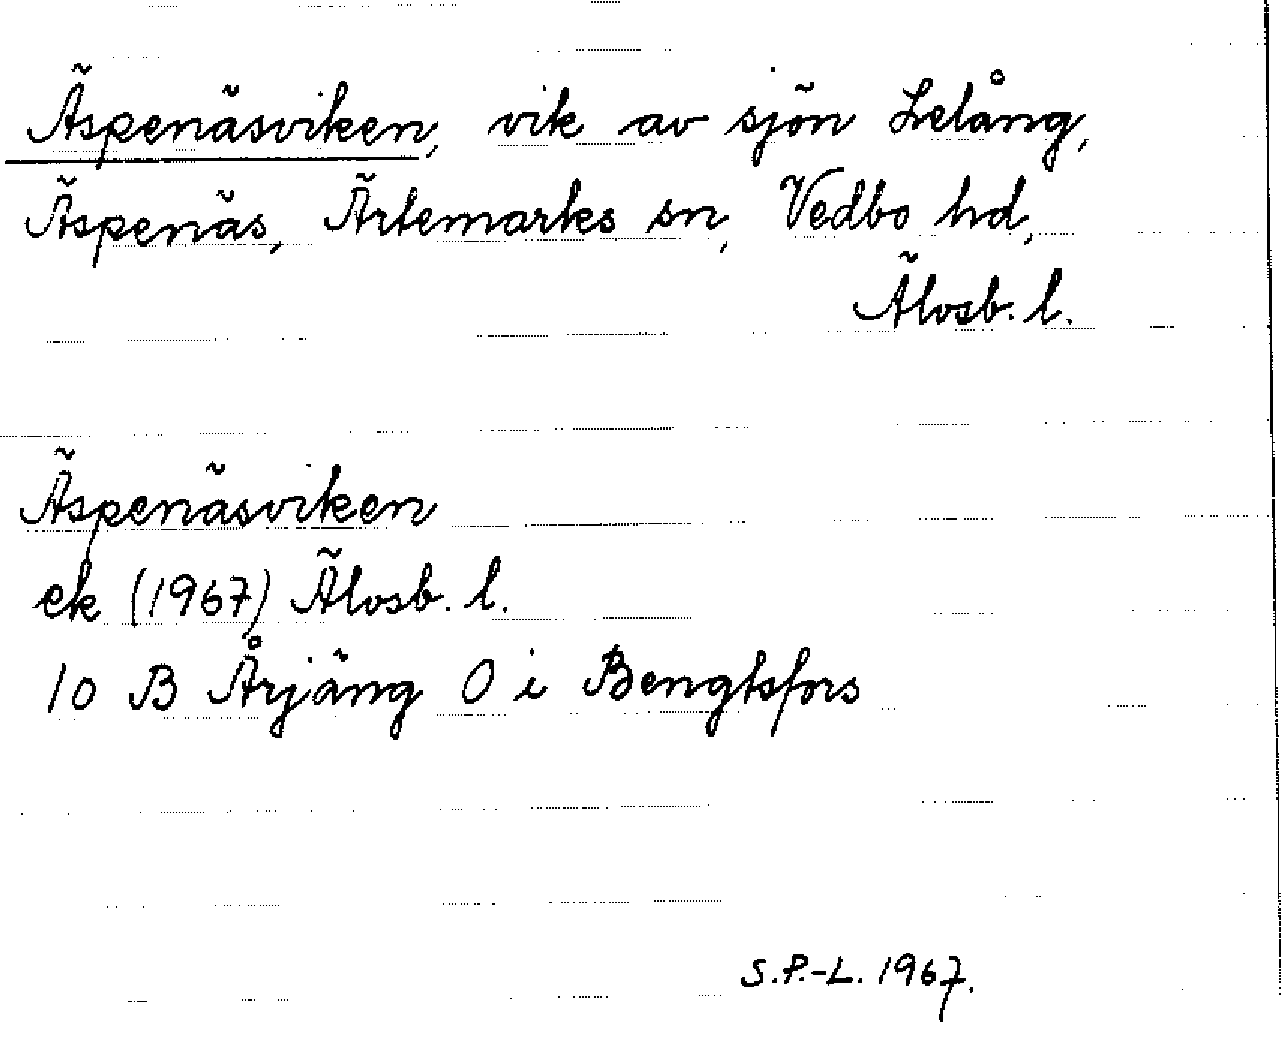 Äspenäsviken, vik av sjön Lelång,
Äspenäs, Ärtemarks sn, Vedbo hd,
Älvsb. l.
Äspenäsviken
ek (1967) Älvsb. l.
10 B Årjäng O i Bengtsfors
S.P.-L. 1967.